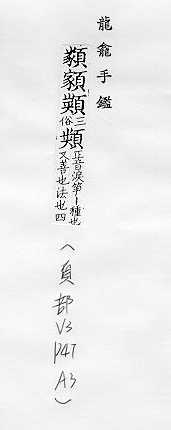 龍龕手鑑
三俗類正音淚等丨種也
又善也法也四
(頁部
V3
P47
A3)